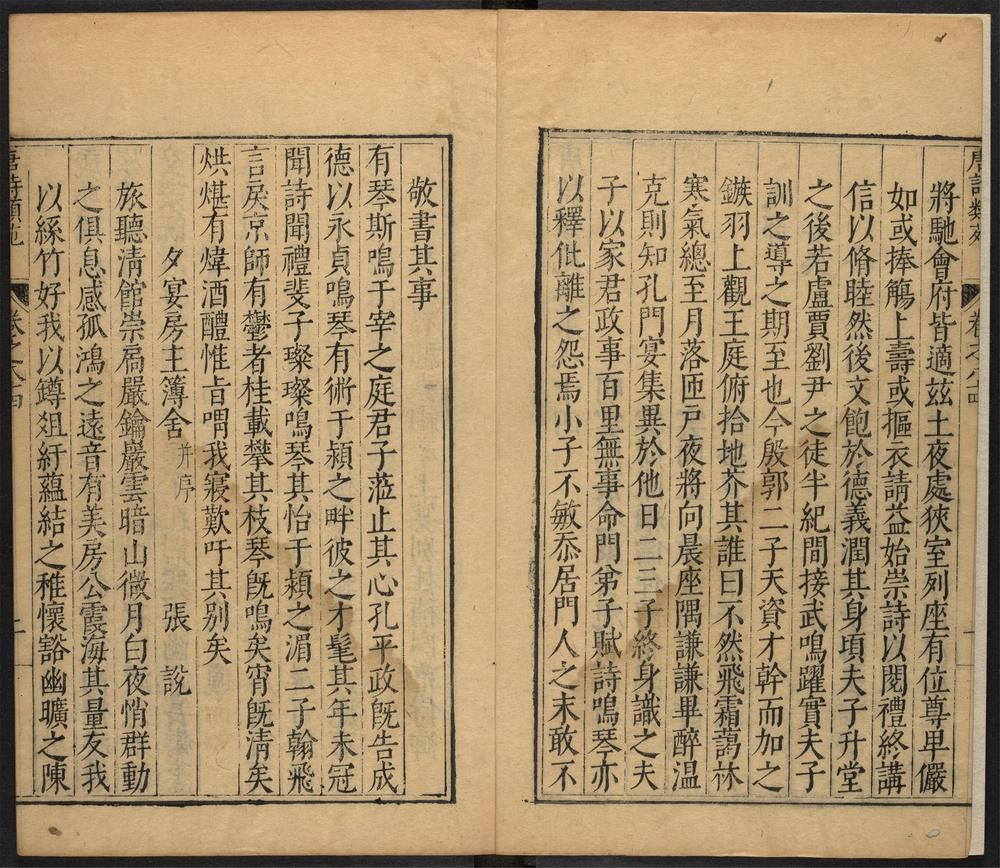 唐詩類苑 卷之八十四
將馳會府皆適茲土夜處狹室列座有位尊卑儼
如或捧觴上壽或摳衣請益始崇詩以閱禮終講
信以脩睦然後文飽於德義潤其身頃夫子升堂
之後若盧賈劉尹之徒半紀間接武鳴躍實夫子
訓之導之期至也今殷郭二子天資才幹而加之
鏃羽上觀王庭俯拾地芥其誰曰不然飛霜蕩林
寒氣總至月落匝戶夜將向晨座隅謙謙畢醉溫
克則知孔門宴集異於他日二三子終身識之夫
子以家君政事百里無事命門弟子賦詩鳴琴亦
以釋仳離之怨焉小子不敏忝居門人之末敢不
敬書其事
有琴斯鳴于宰之庭君子蒞止其心孔平政旣告成
德以永貞鳴琴有術于潁之畔彼之才髦其年未冠
聞詩聞禮斐子璨璨鳴琴其怡于潁之湄二子翰飛
言戾京師有鬱者桂載攀其枝琴旣鳴矣宵旣淸矣
烘煁有煒酒醴惟旨喟我寢歎吁其别矣
夕宴房主簿舍 并序 張說
旅聽淸館崇扃嚴鑰巖雲暗山微月白夜悄群動
之俱息感孤鴻之遠音有美房公霞海其量友我
以絲竹好我以罇爼紆蘊結之稚懷豁幽曠之陳
唐詩類苑 卷之八十四 二